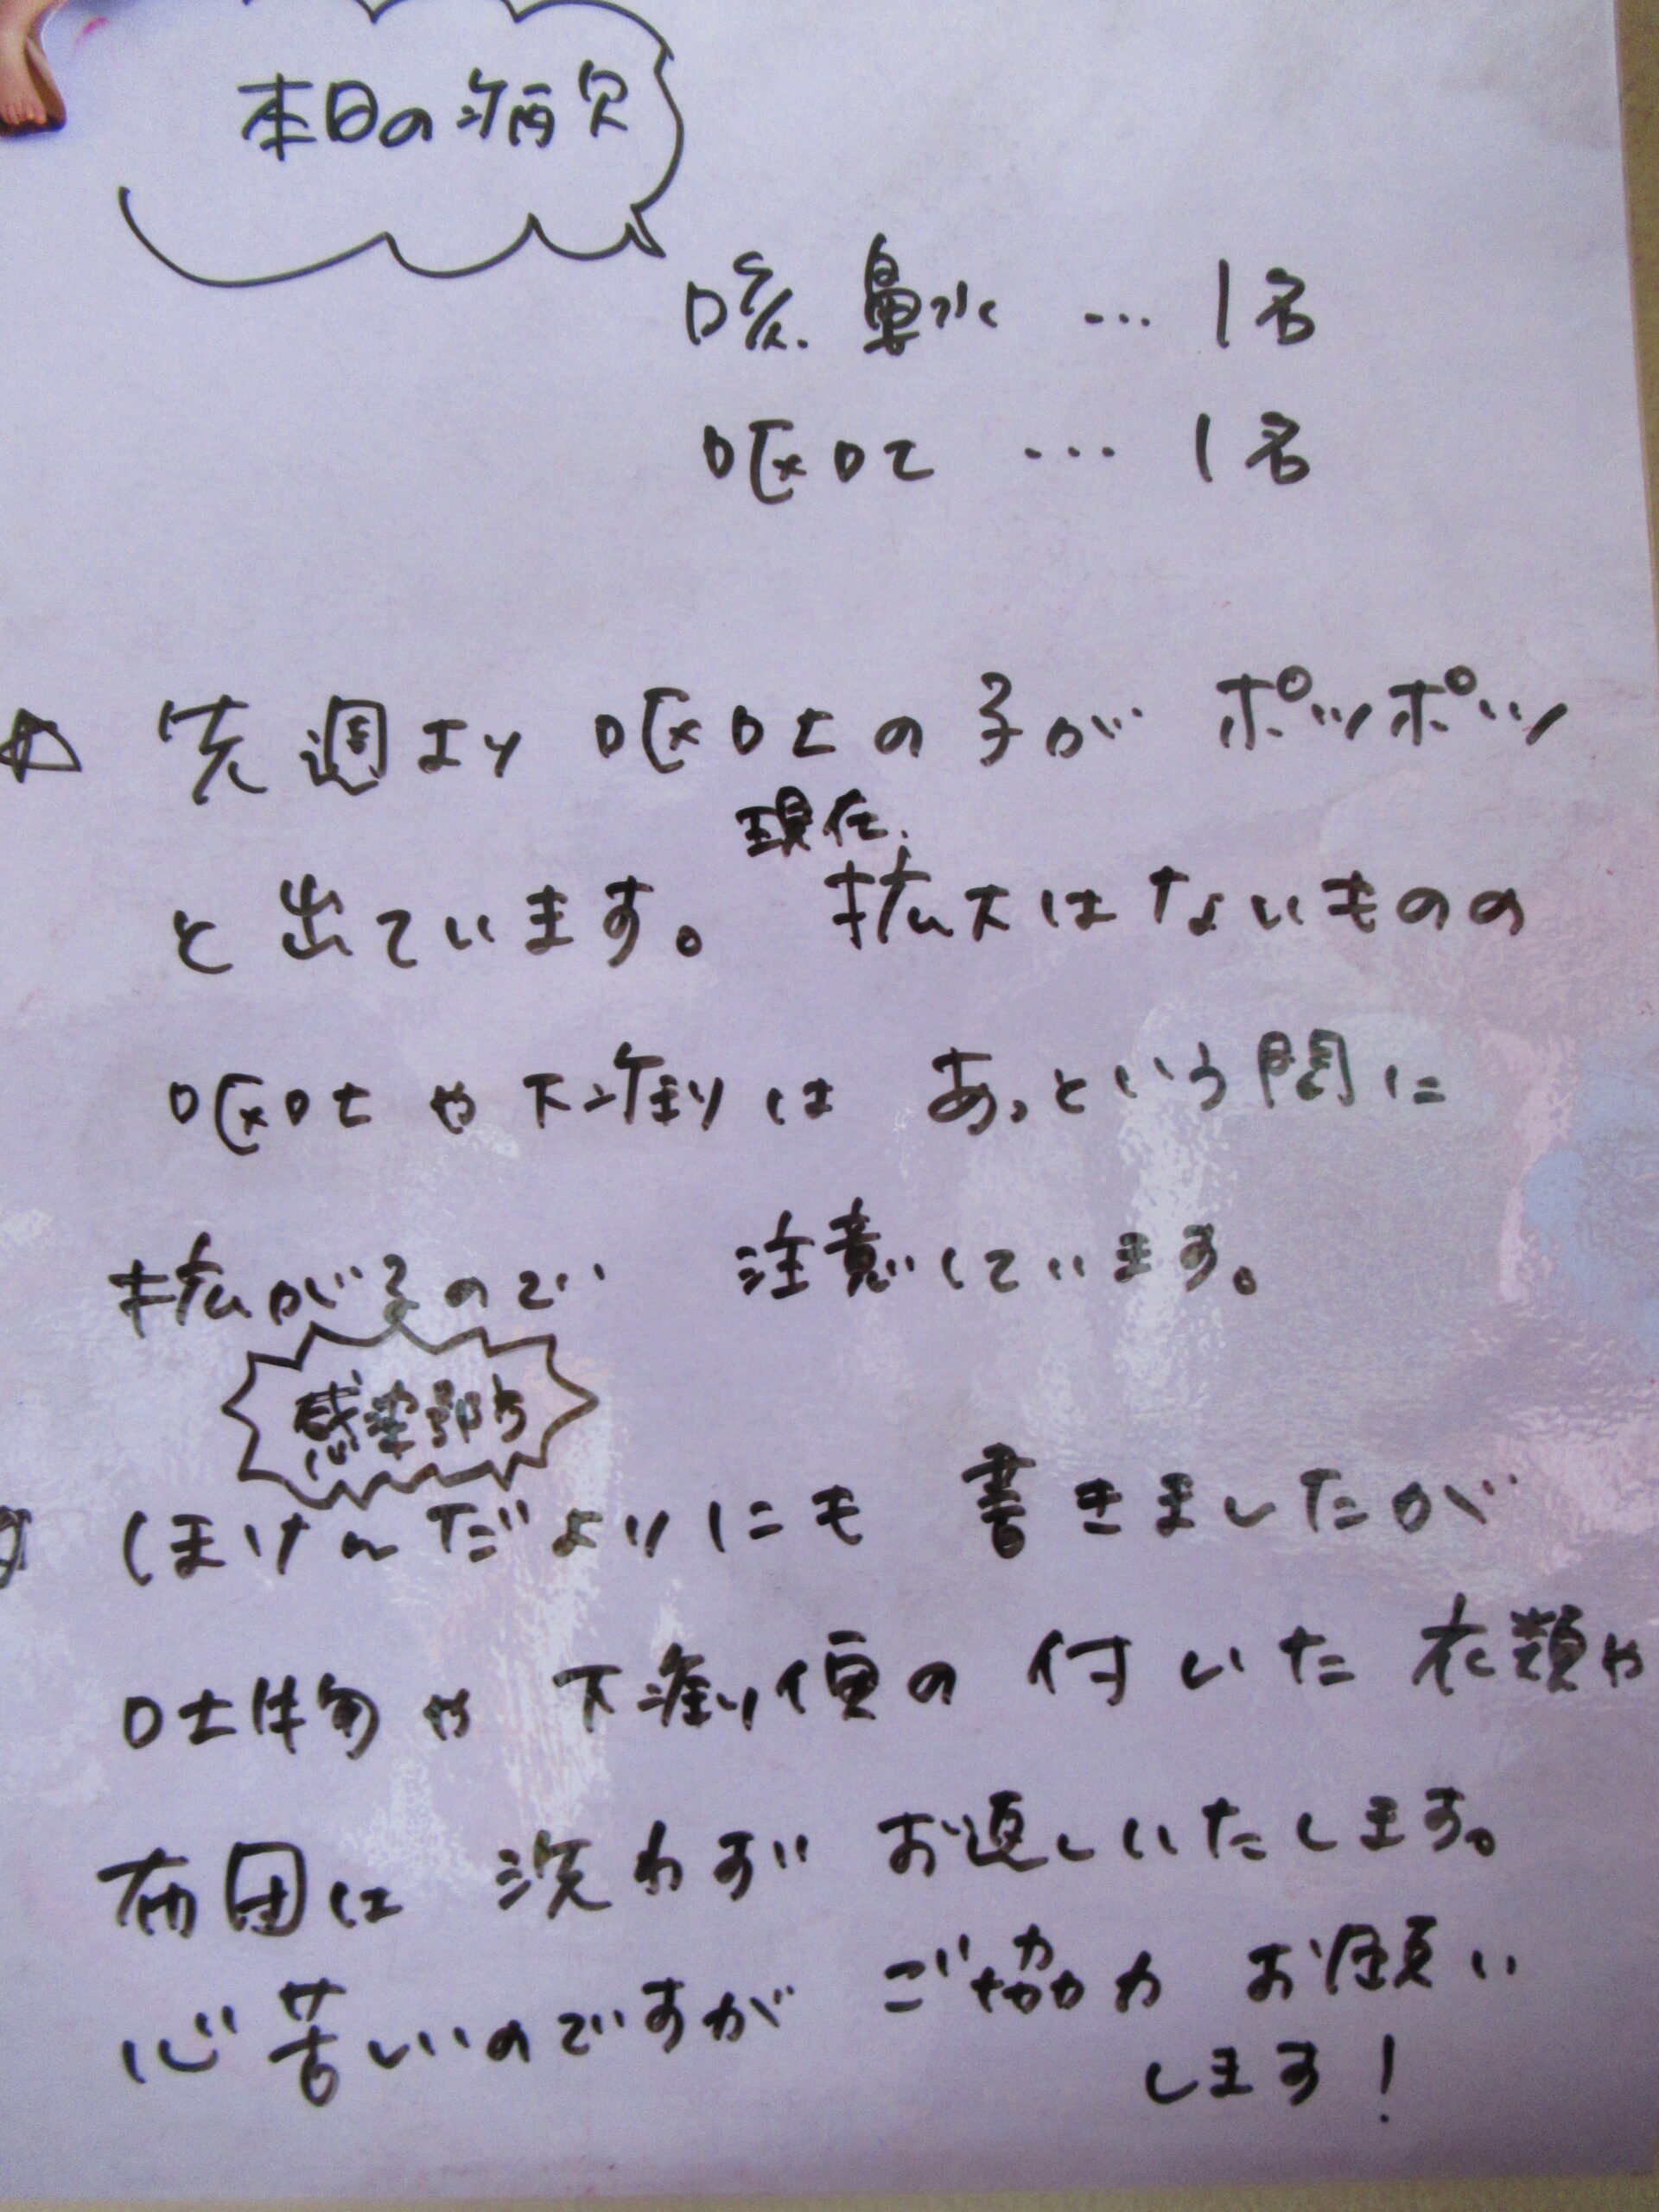 本日の病欠
咳.鼻水 … 1名
嘔吐 … 1名
☆ 先週より 嘔吐の子が ポツポツ
現在、
と出ています。 拡大はないものの
嘔吐や下痢は あっという間に
拡がるので 注意しています。
感染予防
ほけんだよりにも 書きましたが
吐物や下痢便の付いた衣類や
布団は 洗わず お返しいたします。
心苦しいのですが ご協力 お願い
します!